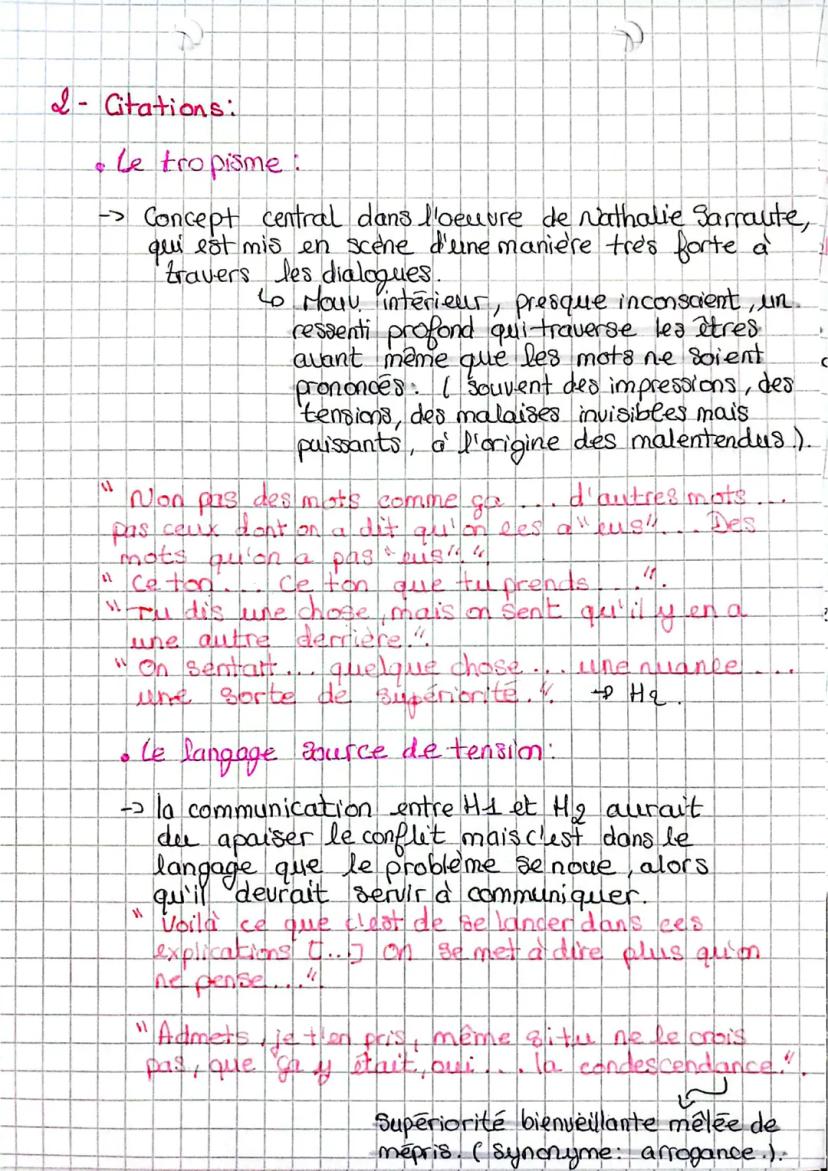 2 - Citations:
• Le tropisme :
-> Concept central dans l'oeuvre de Nathalie Sarraute,
qui est mis en scène d'une manière très forte à
travers les dialogues.
↳ Mouv. intérieur, presque inconscient, un
ressenti profond qui traverse les êtres
avant même que les mots ne soient
prononcés. ( souvent des impressions, des
tensions, des malaises invisibles mais
puissants, à l'origine des malentendus.).
" Non pas des mots comme ça ... d'autres mots ...
pas ceux dont on a dit qu'on les a "eus"... Des
mots qu'on a pas "eus"."
" Ce ton ... Ce ton que tu prends ...".
" Tu dis une chose, mais on sent qu'il y en a
une autre derrière.".
" On sentait ... quelque chose ... une nuance ...
une sorte de supériorité.". -> H2.
• Le langage source de tension:
-> la communication entre H1 et H2 aurait
du apaiser le conflit mais c'est dans le
langage que le problème se noue, alors
qu'il devrait servir à communiquer.
" Voilà ce que c'est de se lancer dans ces
explications [...] On se met à dire plus qu'on
ne pense..."
" Admets, je t'en pris, même si tu ne le crois
pas, que ça y était, oui ... la condescendance.".
Supériorité bienveillante mêlée de
mépris. ( Synonyme: arrogance.).